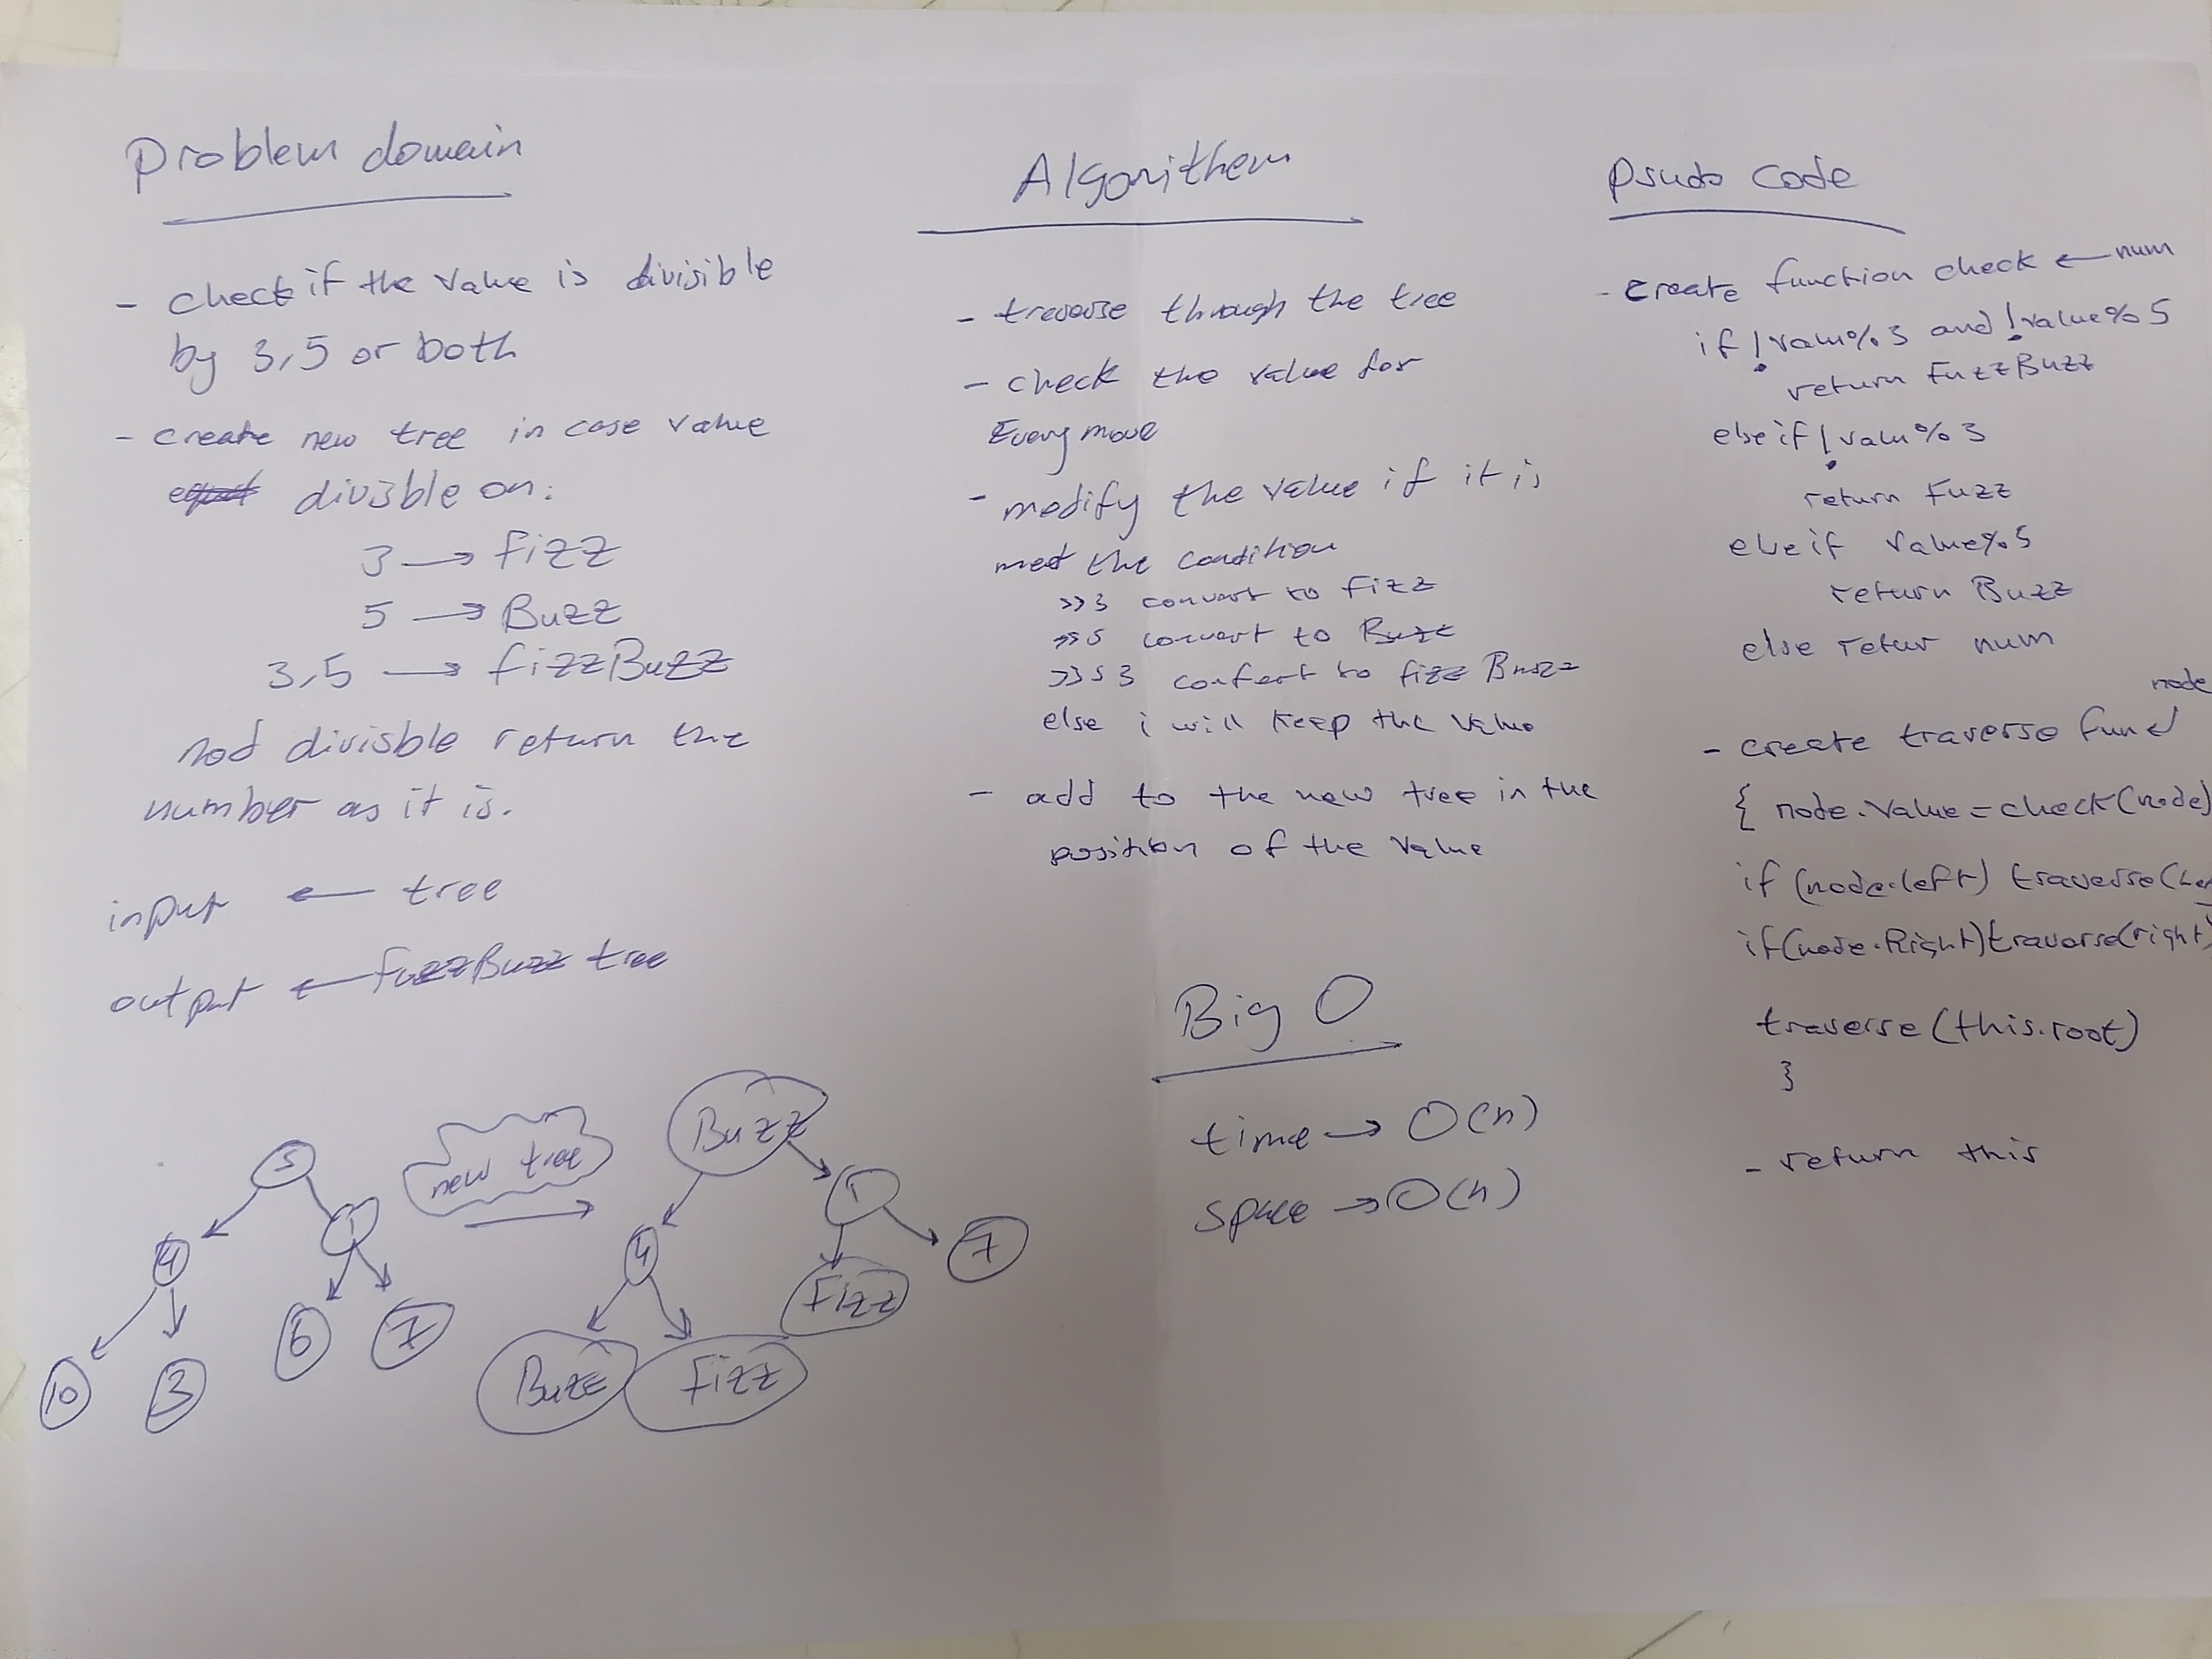 Problem domain
- check if the value is divisible
by 3,5 or both
- create new tree in case value
divisble on:
3 → fizz
5 → Buzz
3,5 → fizzBuzz
not divisble return the
number as it is.
input ← tree
output ← fuzzBuzz tree
5
4
1
10
3
6
7
new tree
Buzz
4
1
Buzz
Fizz
Fizz
7
Algorithem
- traverse through the tree
- check the value for
Every move
- modify the value if it is
meet the condition
>>3 convert to fizz
>>5 convert to Buzz
>>5 3 confert to fizz Buzz
else i will keep the value
- add to the new tree in the
position of the value
Big O
time → O(n)
space → O(n)
Psudo code
- create function check ← num
if !value%3 and !value%5
return FuzzBuzz
else if !value%3
return Fuzz
else if value%5
return Buzz
else retur num
node
- create traverse func
{ node.value = check(node)
if (node.left) traverse(
if(node.Right) traverse(right)
traverse(this.root)
}
- return this